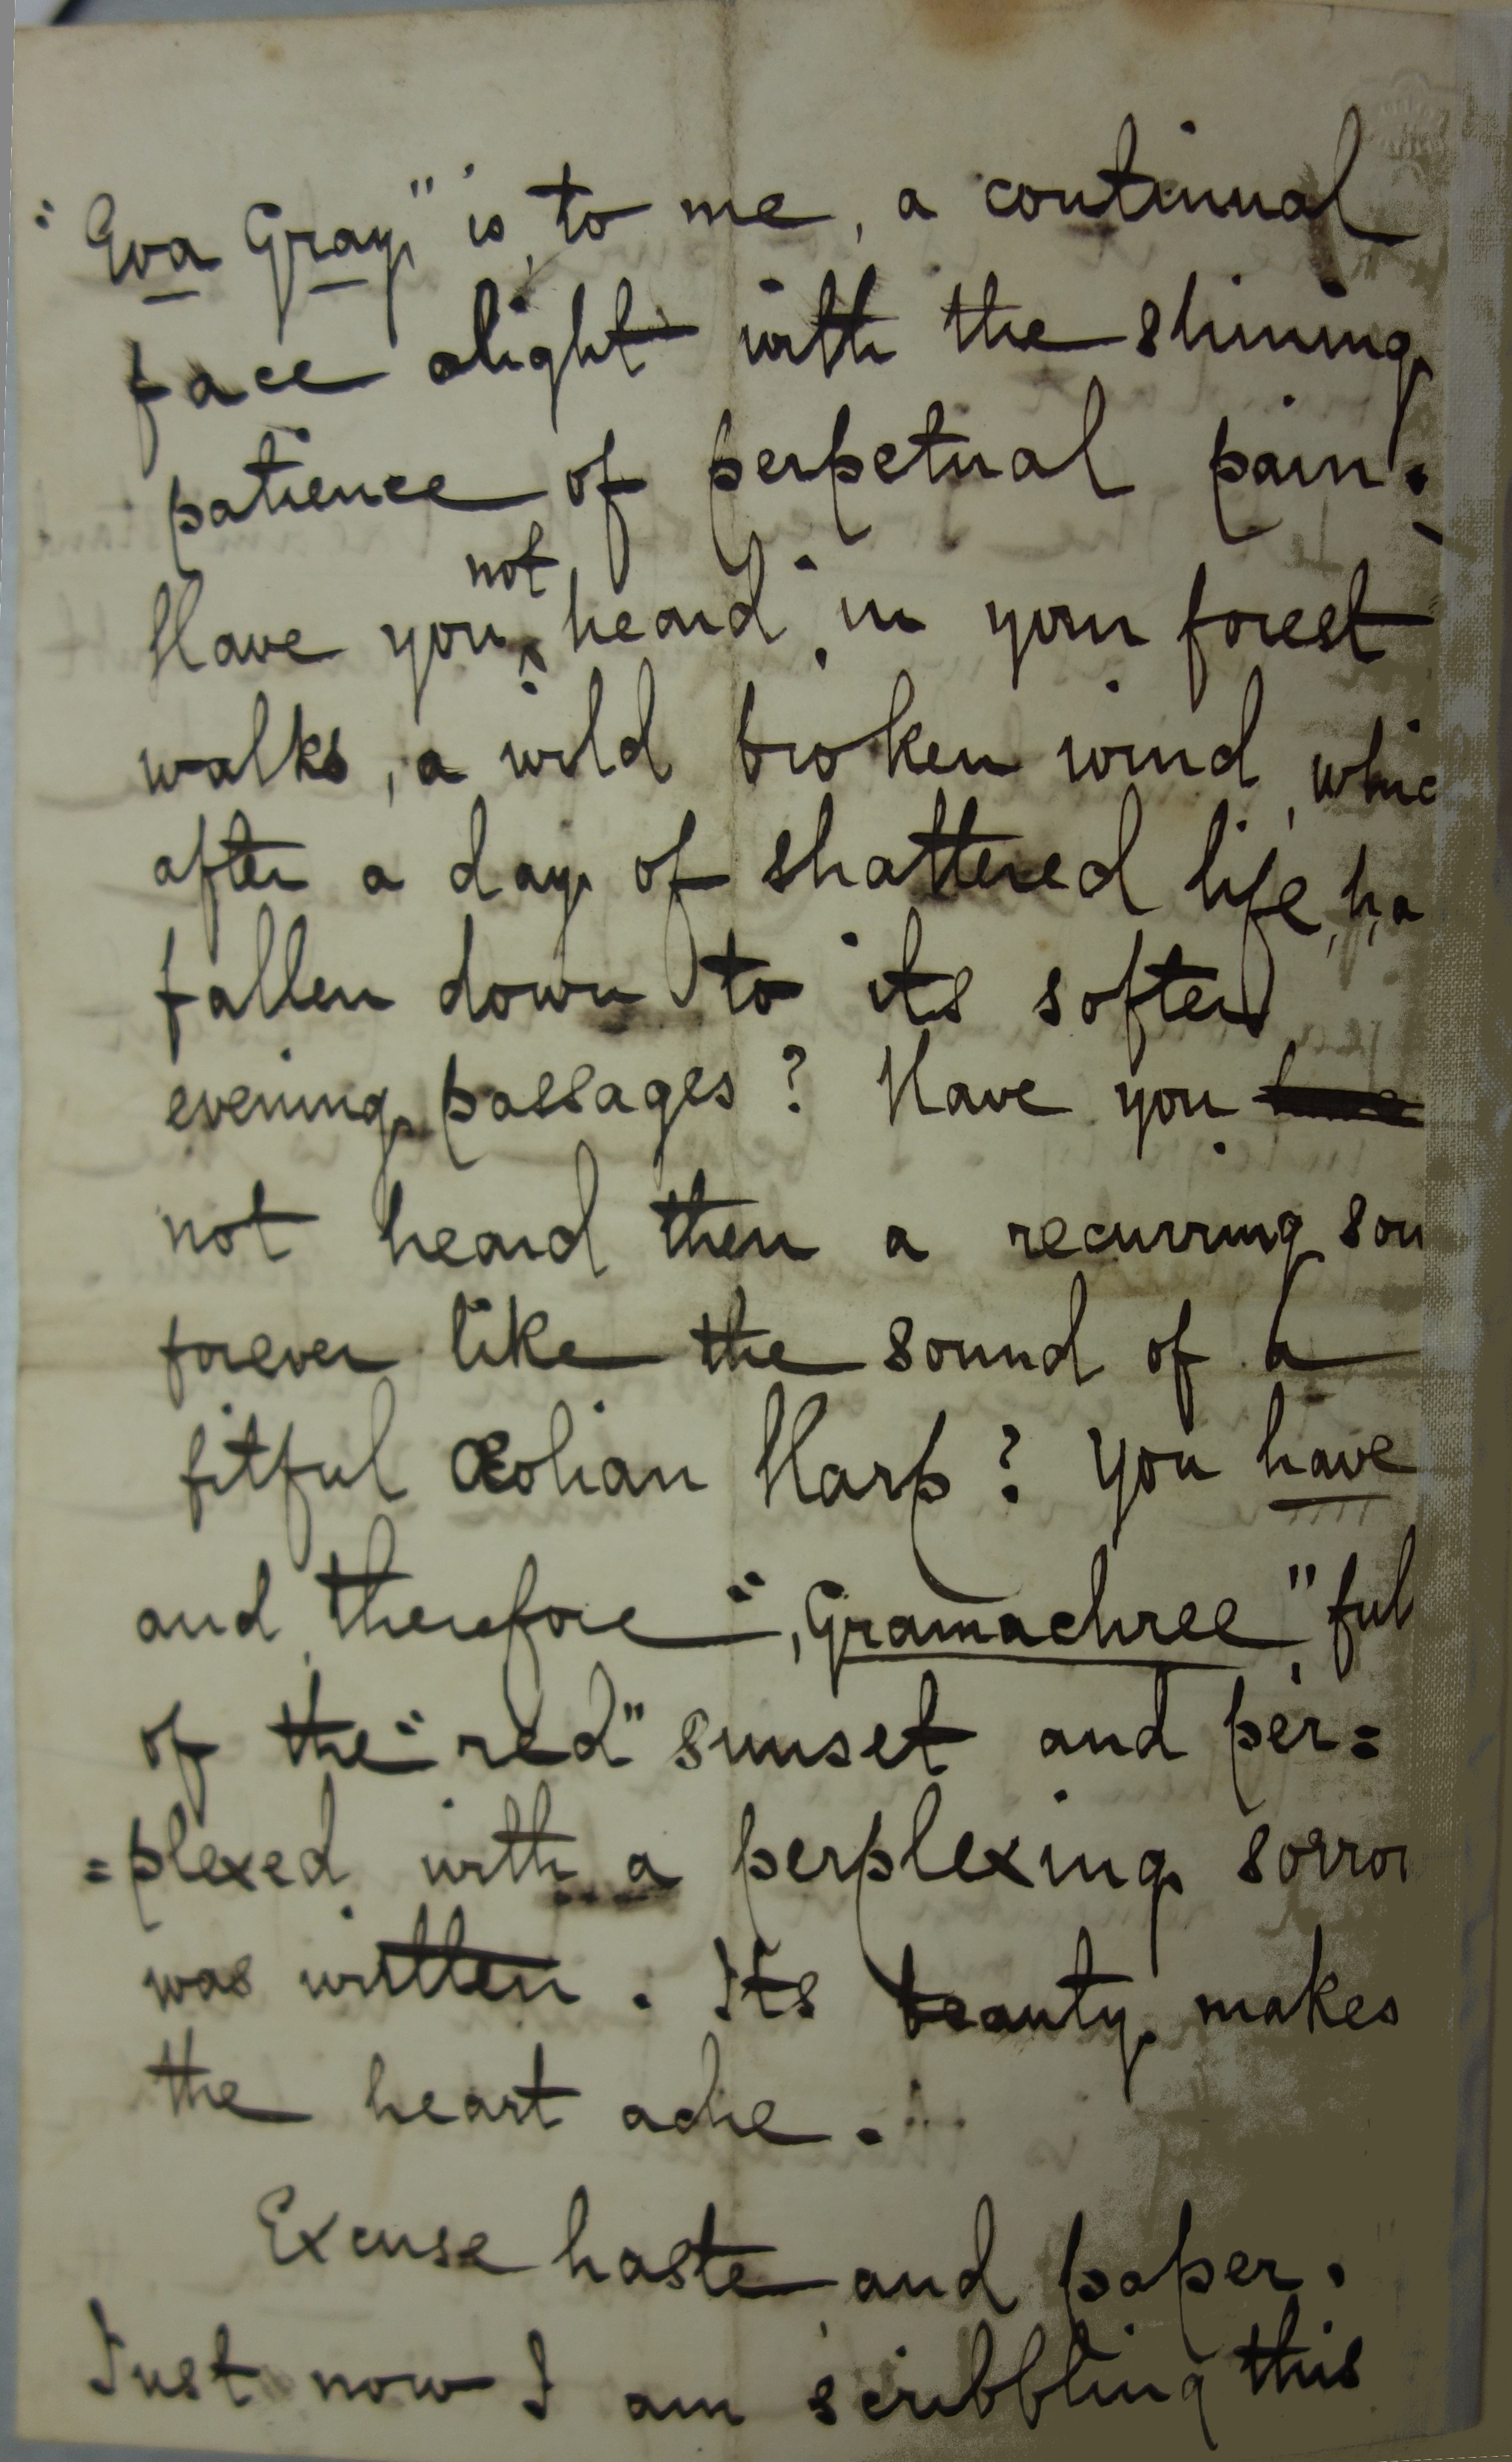 "Eva Gray" is, to me, a continual
face alight with the shining
patience of perpetual pain.
Have you not heard, in your forest
walks, a wild broken wind, whic
after a day of shattered life, ha
fallen down to its softer
evening passages? Have you
not heard then a recurring sou
forever like the sound of a
fitful Æolian Harp? You have
and therefore "Gramachree," ful
of the "red" sunset and per=
=plexed with a perplexing sorro
was written. Its beauty makes
the heart ache.
Excuse haste and paper.
Just now I am scribbling this